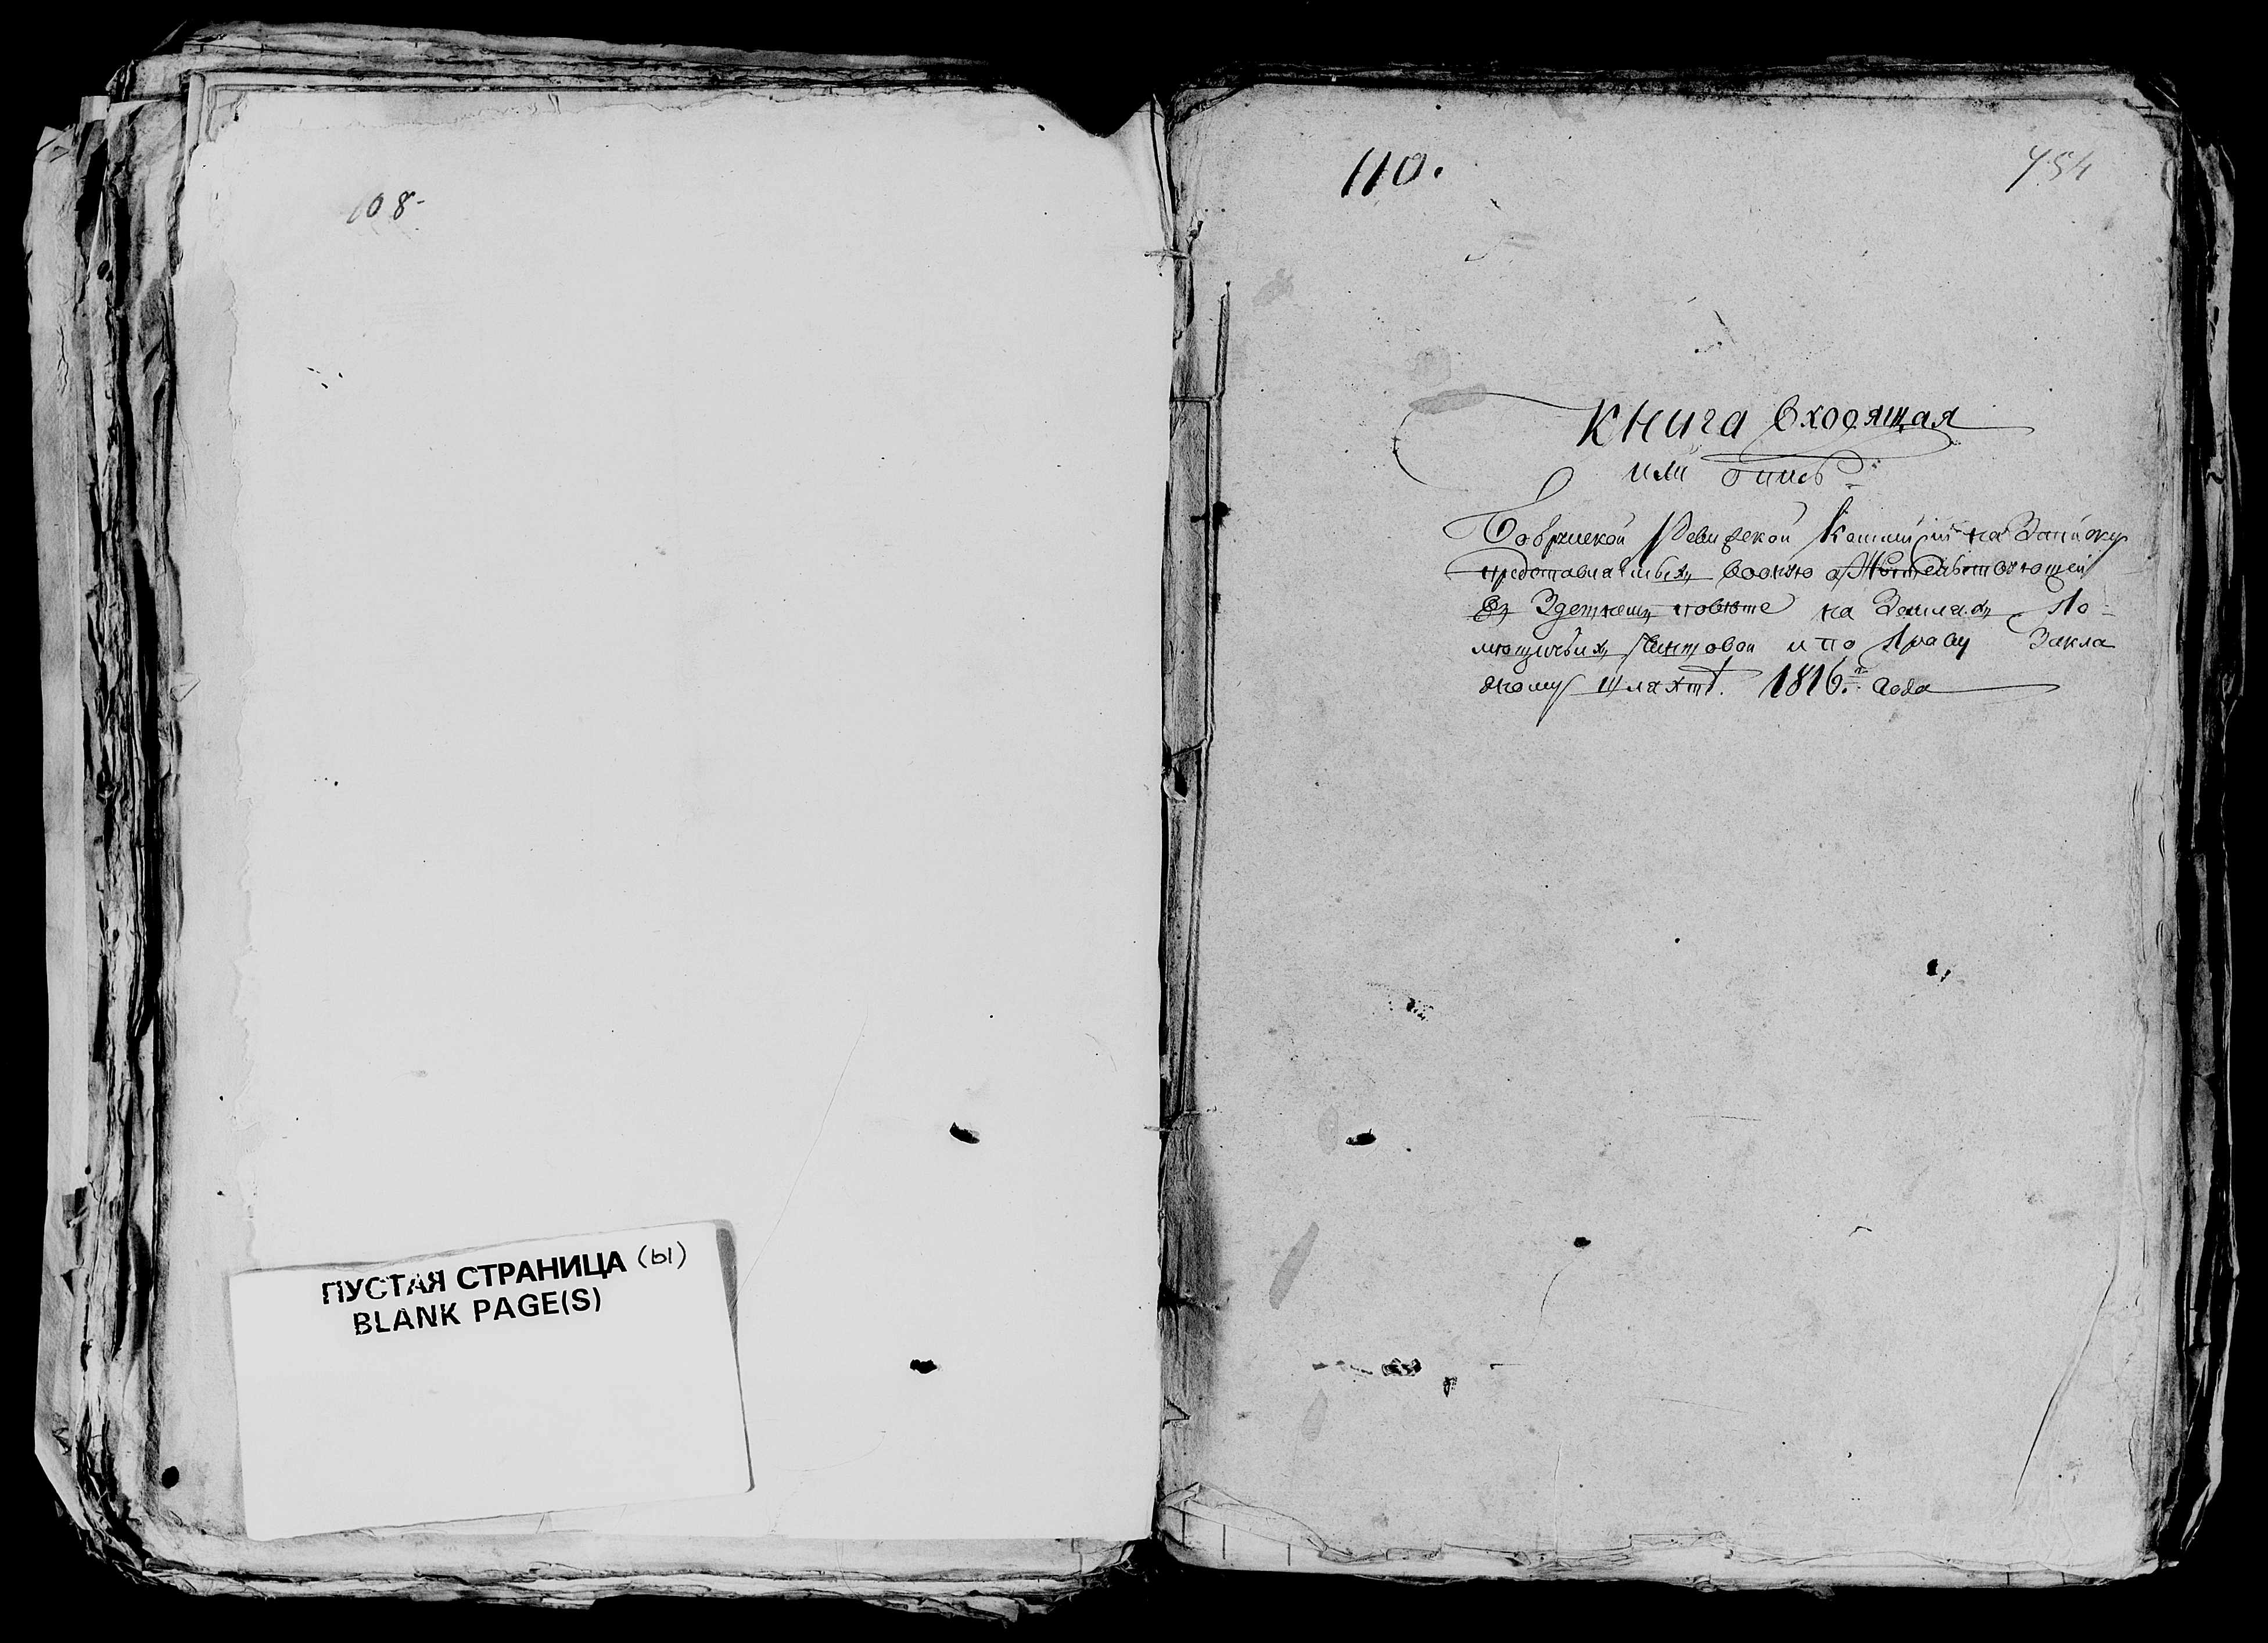 108-
ПУСТАЯ СТРАНИЦА (ы)
BLANK PAGE(S)
110.
754
Книга входящая
или опись
Бобруиской Ревизской Коммиссіи на Записку
представлаемыхъ
въ Здешнемъ повѣте на Землахъ По-
мещичьихъ Чиншовой и по праву Закла
дному шляхтѣ. 1816.го года